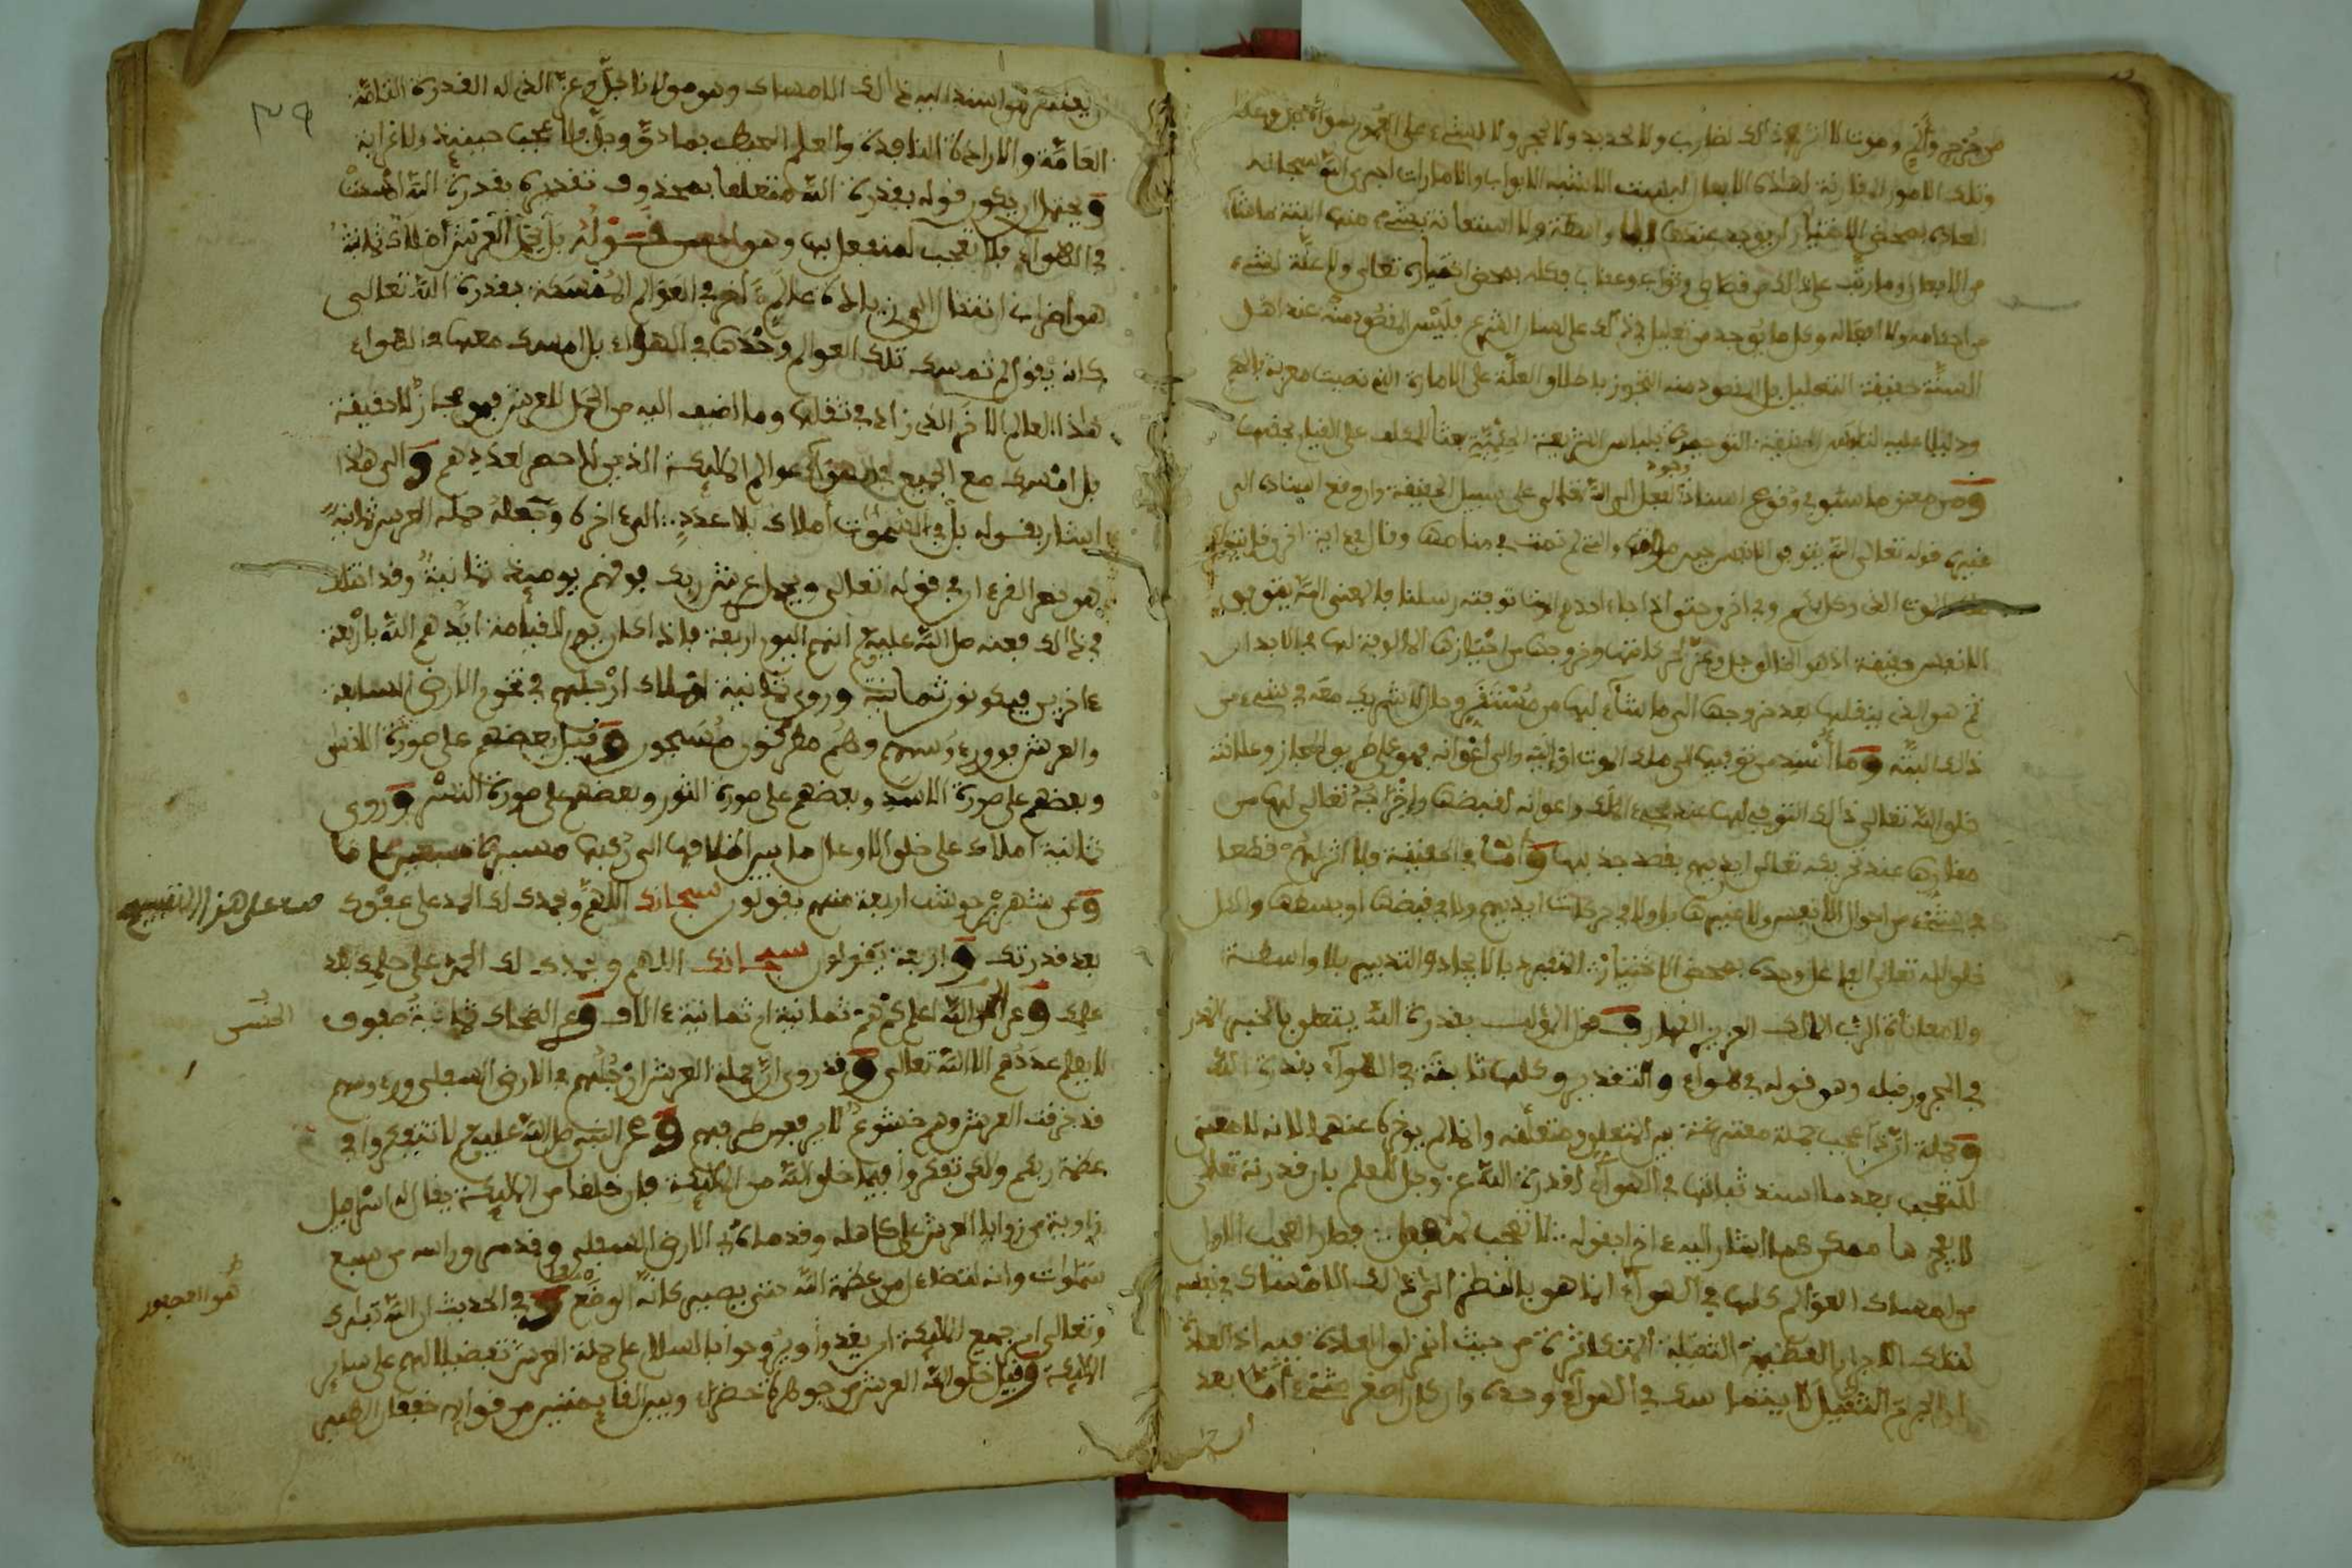 من جرح وألم وموت لا اثر في ذلك لضارب ولا لحديد ولا لحجر ولا لشيء على العموم سواه جل وعلا
وتلك الامور المقارنة لهاذه الافعال ليست الا شبه الابواب والامارات اجرى الله سبحانه
العادة بمحض الاختيار ان يوجد عندها لا بها ولا واسطة ولا استعانة بشيء منها البتة ما شاء
من الافعال وما رتب على ذالك من قصاص وثواب وعقاب فكله بمحض اختياره تعالى ولا علة لشيء
من احكامه ولا افعاله وكل ما يوجد من تعليل في ذلك على لسان الشرع فليس المقصود منه عند اهل
السنة حقيقة التعليل بل المقصود منه التجوز باطلاق العلة على الامارة التي نصبت معرفة بالحكم
ودليلا عليه
ومن معنى ما سبق في وقوع اسناد وجود الفعل الى الله تعالى على سبيل الحقيقة وان وقع اسناده الى
غيره قوله تعالى الله يتوفى الانفس حين موتها والتي لم تمت في منامها وقال في اية اخرى قل يتوفاكم
ملك الموت الذي وكل بكم وفي اخرى حتى اذا جاء احدكم الموت توفته رسلنا فالمعنى الله يتوفى
الانفس حقيقة اذ هو الخالق جل وعز لحركاتها وخروجها من اجسادها المالوفة لها في الابدان
ثم هو الذي ينقلها بعد خروجها الى ما شاء لها من مستقر وحال لا شريك معه في شيء من
ذالك البتة وما اسند من توفيها الى ملك الموت او اليه والى اعوانه فهو على طريق المجاز وعلاقته
خلق الله تعالى ذالك التوفي لها عند مجيء الملك واعوانه لقبضها واخراجه تعالى لها من
مقارها عند تحريكه تعالى ايديهم بقصد جذبها واما في الحقيقة فلا اثر لهم قطعا
في شيء من احوال الانفس ولا غيرها بل ولا في حركات ايديهم ولا في قبضها او بسطها والكل
خلق الله تعالى الفاعل وحده بمحض الاختيار المنفرد بالايجاد والتدبير بلا واسطة
ولا معاناة الرب المالك العزيز القهار وقول المؤلف بقدرة الله يتعلق بالخبر المقدر
في المجرور قبله وهو قوله في هواء والتقدير وكلها ثابتة في الهواء بقدرة الله
وجملة ان ذا عجب جملة معترضة بين المتعلق ومتعلقه وانما لم يوخرها عنهما لانه لا معنى
للتعجب بعد ما اسند ثباتها في الهواء لقدرة الله عز وجل للعلم بان قدرته تعالى
لا يعجزها ممكن كما اشار اليه ءاخرا بقوله لا تعجب لمنفعل فصار العجب الاول
من امساك العوالم كلها في الهواء انما هو بالنظر الى ذالك الامساك في نفسه
لتلك الاجرام العظيمة الثقيلة المتكاثرة من حيث انخراق العادة فيه اذ العادة
ان الجرم الثقيل لا يتماسك في الهواء وحده وان كان اصغر شيء اما بعد
ان يعتبر من اسند اليه ذالك الامساك وهو مولانا جل وعز الذي له القدرة التامة
العامة والارادة النافذة والعلم المحيط بما دق وجل فلا عجب حينئذ ولا غرابة
ويحتمل ان يكون قوله بقدرة الله متعلقا بمحذوف تقديره بقدرة الله امسكت
في الهواء فلا تعجب لمنفعل بها وهو احسن قوله بل يحمل العرش املاك ثمانية
هو اضراب انتقالي الى زيادة عالم ءاخر في العوالم الممسكة بقدرة الله تعالى
كانه يقول لم تمسك تلك العوالم وحدها في الهواء بل امسك معها في الهواء
هذا العالم الاخر الذي زاد في ثقلها وما اضيف اليه من الحمل للعرش فهو مجاز لا حقيقة
بل امسك مع الجميع في الهواء عوالم الملئكة الذين لا حصر لعددهم والى هذا
اشار بقوله بل في السموات املاك بلا عدد الى ءاخره وجعله حملة العرش ثمانية
هو نص القرءان في قوله تعالى ويحمل عرش ربك فوقهم يومئذ ثمانية وقد اختلف
في ذالك فعنه صلى الله عليه وسلم انهم اليوم اربعة فاذا كان يوم القيامة ايدهم الله باربعة
ءاخرين فيكونون ثمانية وروي ثمانية املاك ارجلهم في تخوم الارض السابعة
والعرش فوق رءوسهم وهم مطرقون مسبحون وقيل بعضهم على صورة الانسان
وبعضهم على صورة الاسد وبعضهم على صورة الثور وبعضهم على صورة النسر وروي
ثمانية املاك على خلق الاوعال ما بين اظلافها الى ركبها مسيرة سبعين عاما
وعن شهر بن حوشب اربعة منهم يقولون سبحانك اللهم وبحمدك لك الحمد على عفوك
بعد قدرتك واربعة يقولون سبحانك اللهم وبحمدك لك الحمد على حلمك بعد
علمك وعن الحسن الله اعلم كم هم ثمانية ام ثمانية ءالاف وعن الضحاك ثمانية صفوف
لا يعلم عددهم الا الله تعالى وقد روي ان حملة العرش ارجلهم في الارض السفلى ورءوسهم
قد خرقت العرش وهم خشوع لا يرفعون طرفهم وعن النبي صلى الله عليه وسلم لا تتفكروا في
عظمة ربكم ولكن تفكروا فيما خلق الله من الملئكة فان خلقا من الملئكة يقال له اسرافيل
زاوية من زوايا العرش على كاهله وقدماه في الارض السفلى وقد مرق راسه من سبع
سموات وانه ليتضاءل من عظمة الله حتى يصير كانه الوصع وفي الحديث ان الله تبارك
وتعالى امر جميع الملئكة ان يغدوا ويروحوا بالسلام على حملة العرش تفضيلا لهم على سائر
الملئكة وقيل خلق الله العرش من جوهرة خضراء وبين القائمتين من قوائمه خفقان الطير
الحسن
هو العصفور